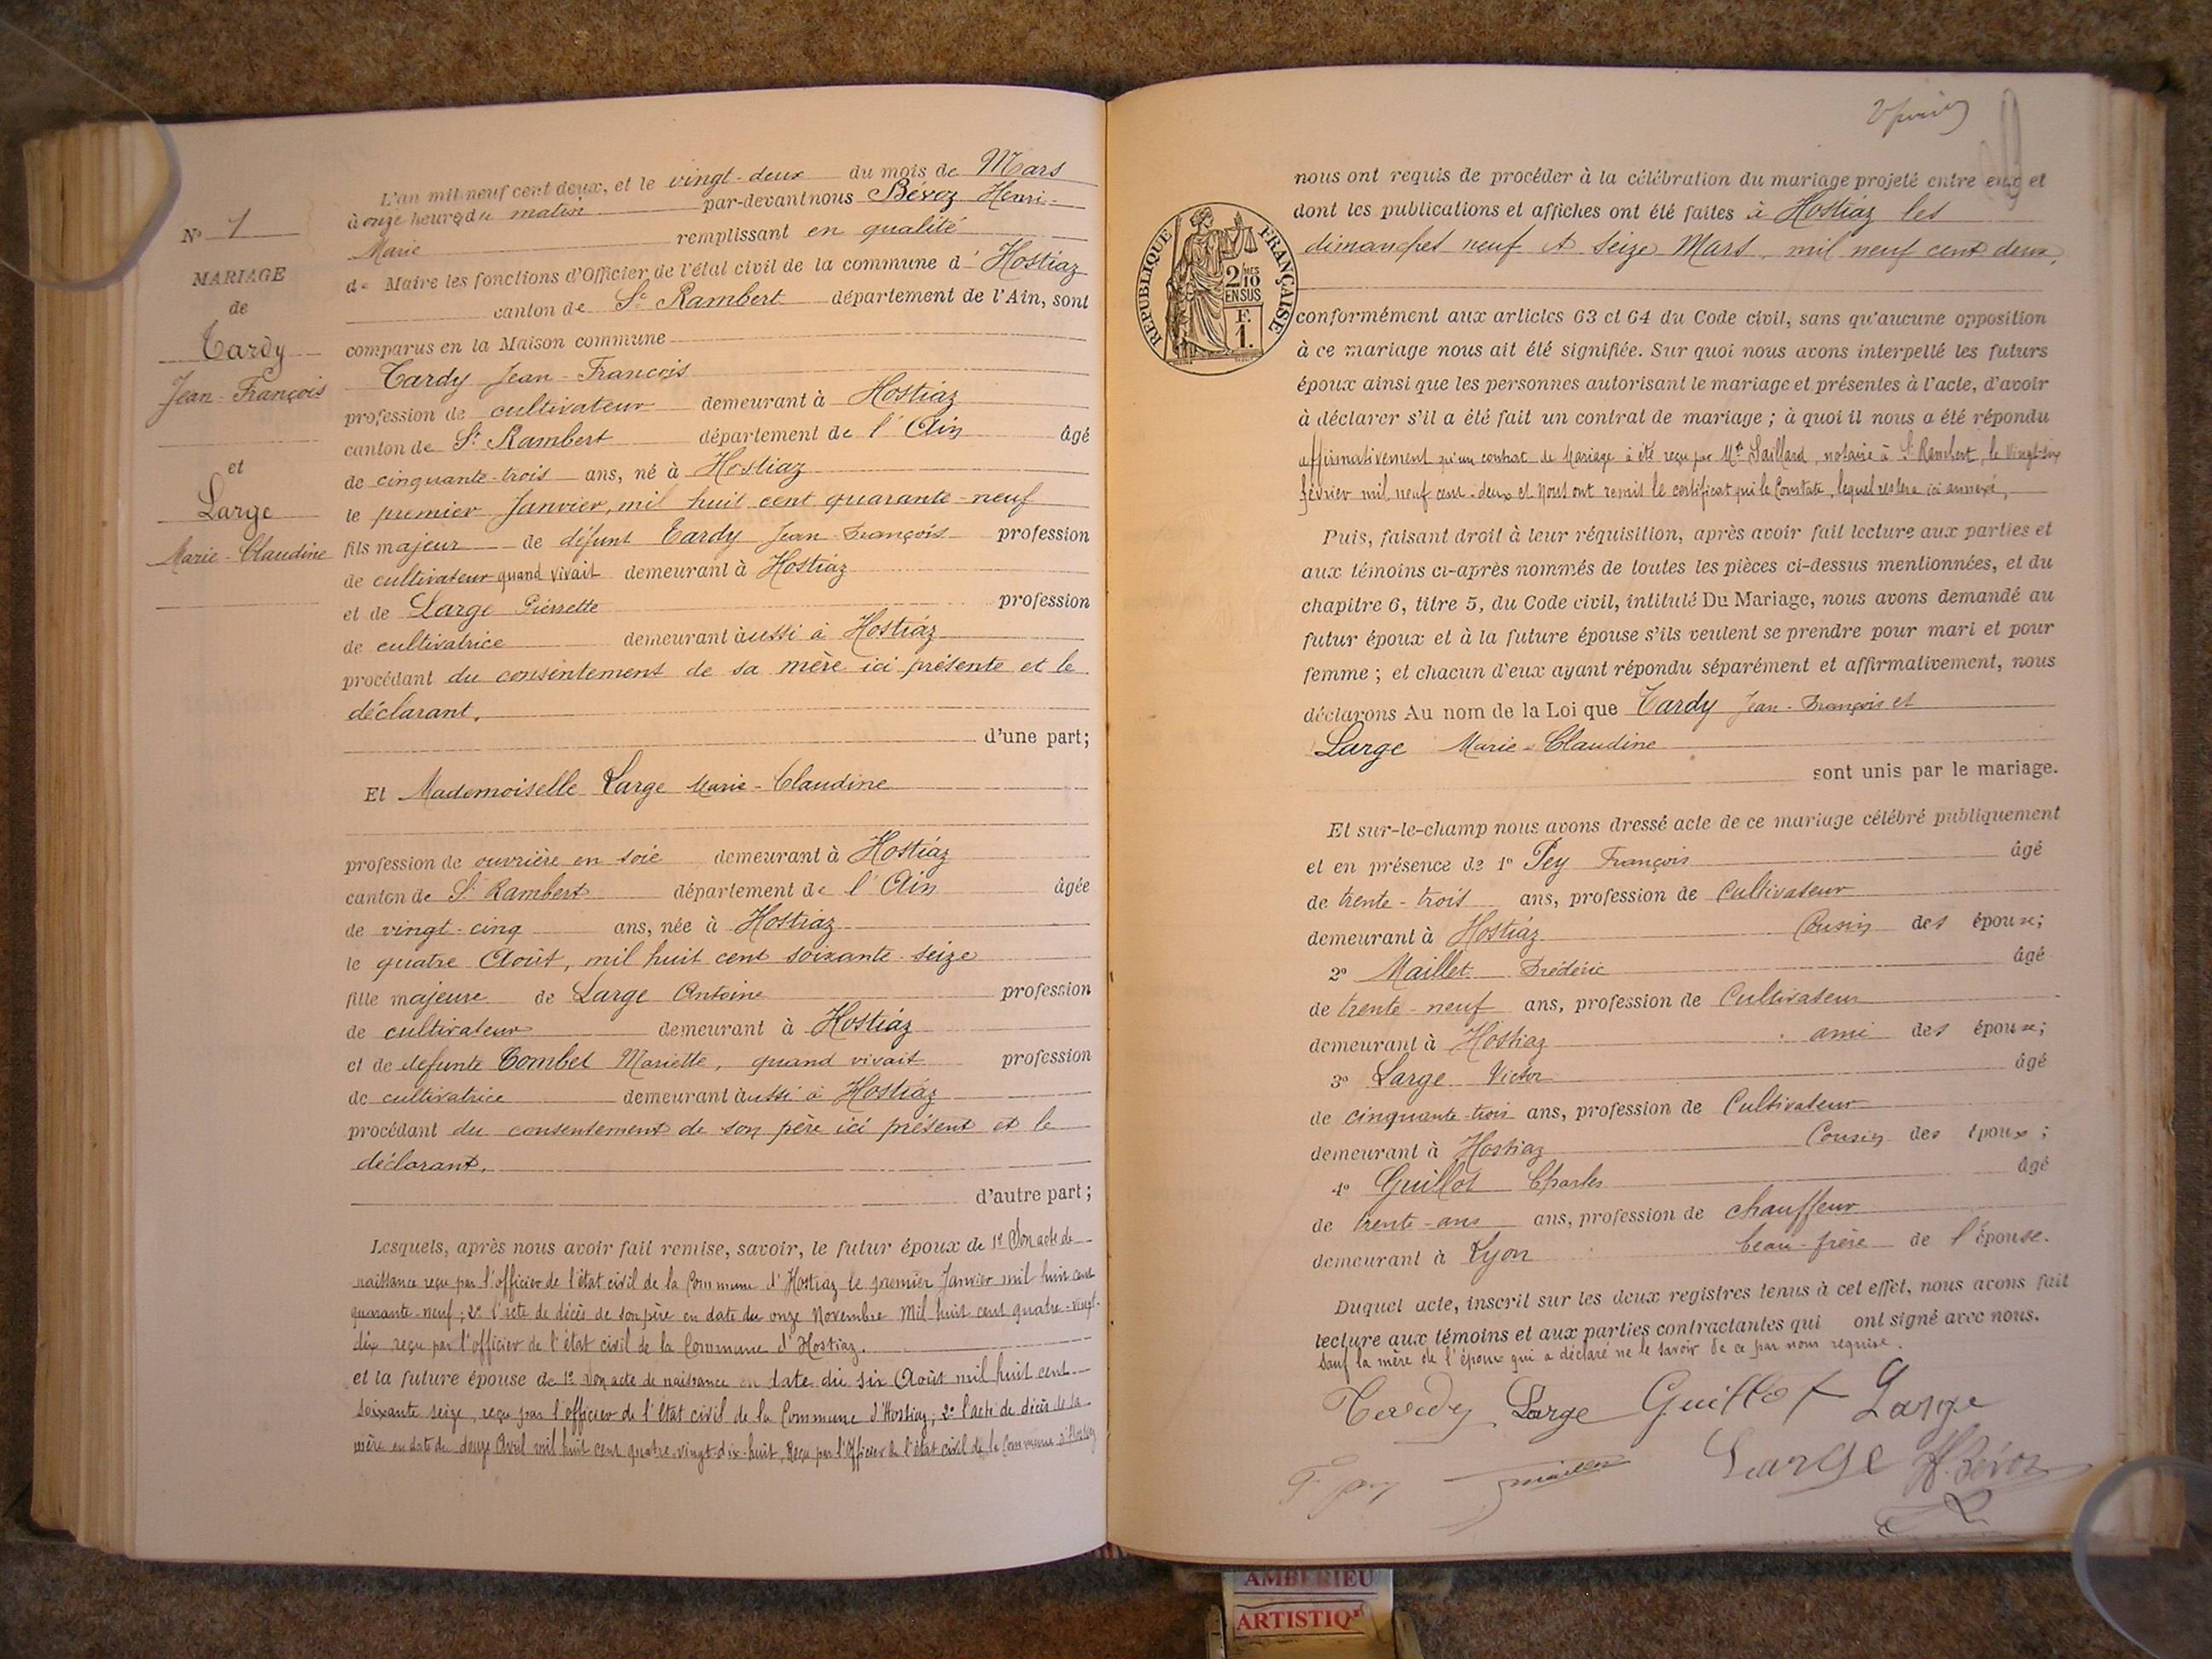 N° 1
MARIAGE
de
Tardy
Jean-François
et
Large
Marie-Claudine
L'an mil neuf cent deux, et le vingt-deux du mois de Mars
à onze heures du matin par-devant nous Bévoz Henri-
Marie remplissant en qualité
de Maire les fonctions d'Officier de l'état civil de la commune d'Hostiaz
canton de St Rambert département de l'Ain, sont
comparus en la Maison commune
Tardy Jean-François
profession de cultivateur demeurant à Hostiaz
canton de St Rambert département de l'Ain âgé
de cinquante-trois ans, né à Hostiaz
le premier Janvier, mil huit cent quarante-neuf
fils majeur de défunt Tardy Jean-François profession
de cultivateur quand vivait demeurant à Hostiaz
et de Large Pierrette profession
de cultivatrice demeurant aussi à Hostiaz
procédant du consentement de sa mère ici présente et le
déclarant.
d'une part;
Et Mademoiselle Large Marie-Claudine
profession de ouvrière en soie demeurant à Hostiaz
canton de St Rambert département de l'Ain âgée
de vingt-cinq ans, née à Hostiaz
le quatre Août, mil huit cent soixante-seize
fille majeure de Large Antoine profession
de cultivateur demeurant à Hostiaz
et de défunte Combet Mariette, quand vivait profession
de cultivatrice demeurant aussi à Hostiaz
procédant du consentement de son père ici présent et le
déclarant.
d'autre part;
Lesquels, après nous avoir fait remise, savoir, le futur époux de 1° Son acte de
naissance reçu par l'officier de l'état civil de la Commune d'Hostiaz le premier Janvier mil huit cent
quarante-neuf; 2° l'acte de décès de son père en date du onze Novembre mil huit cent quatre-vingt-
dix reçu par l'officier de l'état civil de la Commune d'Hostiaz.
et la future épouse de 1° Son acte de naissance en date du six Août mil huit cent
soixante seize, reçu par l'officier de l'état civil de la Commune d'Hostiaz; 2° l'acte de décès de sa
mère en date du douze Avril mil huit cent quatre-vingt-dix-huit, Reçu par l'Officier de l'état civil de la Commune d'Hostiaz
nous ont requis de procéder à la célébration du mariage projeté entre eux et
dont les publications et affiches ont été faites à Hostiaz les
dimanches neuf et seize Mars, mil neuf cent deux,
RÉPUBLIQUE FRANÇAISE
2/10MES
EN SUS
F.
1.
conformément aux articles 63 et 64 du Code civil, sans qu'aucune opposition
à ce mariage nous ait été signifiée. Sur quoi nous avons interpellé les futurs
époux ainsi que les personnes autorisant le mariage et présentes à l'acte, d'avoir
à déclarer s'il a été fait un contrat de mariage; à quoi il nous a été répondu
affirmativement qu'un contrat de Mariage a été reçu par Me Saillard, notaire à St Rambert, le vingt-six
février mil neuf cent-deux et Nous ont remis le certificat qui le Constate, lequel restera ici annexé,
Puis, faisant droit à leur réquisition, après avoir fait lecture aux parties et
aux témoins ci-après nommés de toutes les pièces ci-dessus mentionnées, et du
chapitre 6, titre 5, du Code civil, intitulé Du Mariage, nous avons demandé au
futur époux et à la future épouse s'ils veulent se prendre pour mari et pour
femme; et chacun d'eux ayant répondu séparément et affirmativement, nous
déclarons Au nom de la Loi que Tardy Jean-François et
Large Marie-Claudine
sont unis par le mariage.
Et sur-le-champ nous avons dressé acte de ce mariage célébré publiquement
et en présence de 1° Pey François âgé
de trente-trois ans, profession de Cultivateur
demeurant à Hostiaz Cousin des époux;
2° Maillet Frédéric âgé
de trente-neuf ans, profession de Cultivateur
demeurant à Hostiaz ami des époux;
3° Large Victor âgé
de cinquante-trois ans, profession de Cultivateur
demeurant à Hostiaz Cousin des époux;
4° Guillot Charles âgé
de trente-ans ans, profession de chauffeur
demeurant à Lyon beau-frère de l'épouse.
Duquel acte, inscrit sur les deux registres tenus à cet effet, nous avons fait
lecture aux témoins et aux parties contractantes qui ont signé avec nous.
Sauf la mère de l'époux qui a déclaré ne le savoir de ce par nous requise.
Tardy Large Guillot Large
F Pey Maillet Large H. Bévoz
AMBERIEU
ARTISTIQ